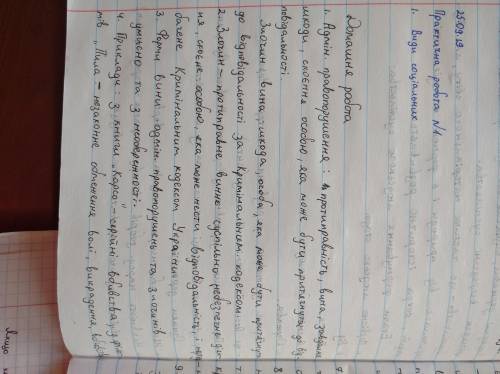 25.09.19
Практична робота №1
1. Види соціальних
Домашня робота
1. Адмін. правопорушення: протиправність, вина, завдання
шкоди, скоєння особою, яка може бути притягнута до від-
повідальності.
Злочин: вина, шкода, особа, яка може бути притягнута
до відповідальності за Кримінальним кодексом.
2. Злочин – протиправне винне суспільно небезпечне
ня, скоєне особою, яка може нести відповідальність, і
бачене Кримінальним кодексом України.
3. Форми вини адмін. правопорушень та злочинів:
умисно та з необережності.
4. Приклади: з книги "Карсо" – серійні вбивства; у філь-
мів "Пила" – незаконне обмеження волі, викрадення,
Якщо
7
8
9